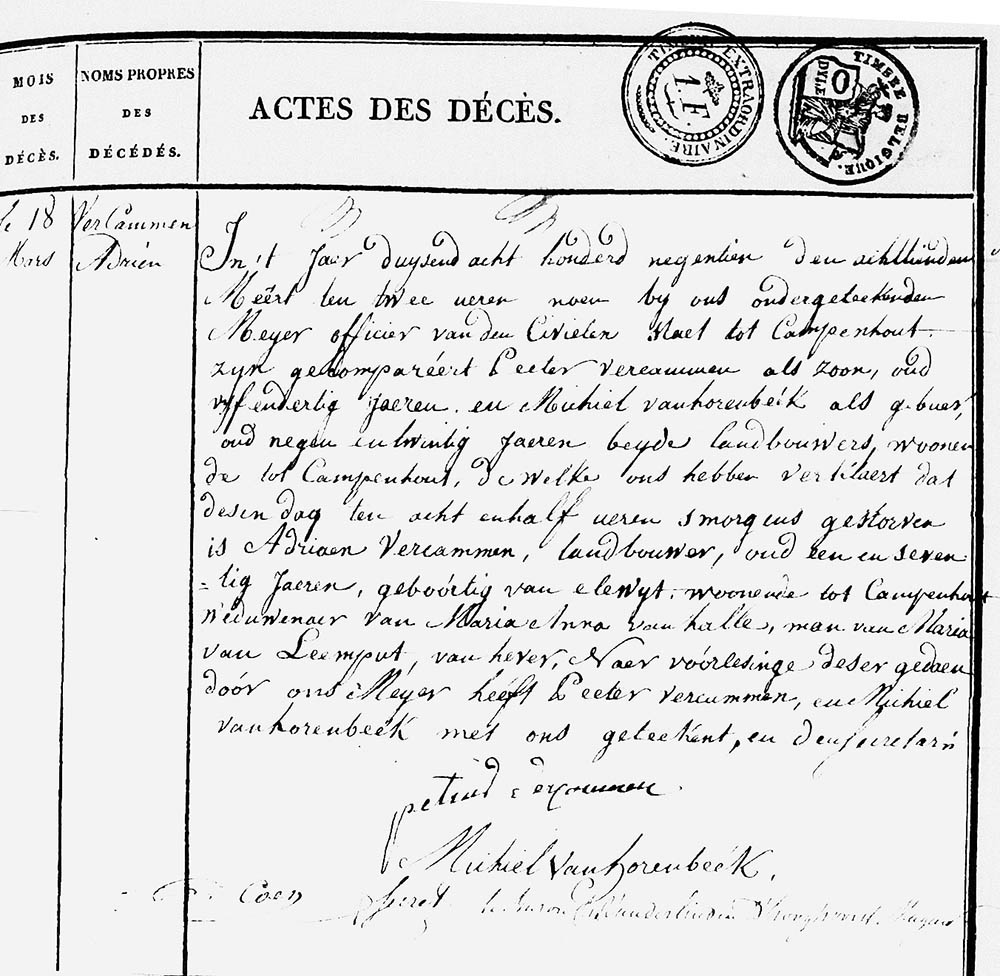 MOIS
DES
DÉCÈS.
NOMS PROPRES
DES
DÉCÉDÉS.
ACTES DES DÉCÈS.
TIMBRE EXTRAORDINAIRE.
1.F.
TIMBRE BELGIQUE.
DYLE
O
le 18
Mars
Vercammen
Adrien
In't Jaer duysend acht honderd negentien den achttienden
Méért ten twee ueren noen by ons ondergeteekenden
Meyer officier van den Civielen Staet tot Campenhout.
zyn gecomparéért Peeter Vercammen als zoon, oud
vyfendertig Jaeren. en Michiel vanhorenbeék als gebuer,
oud negen entwintig Jaeren beyde landbouwers, woonen
de tot Campenhout, de welke ons hebben verklaert dat
desen dag ten acht enhalf ueren smorgens gestorven
is Adriaen Vercammen, landbouwer, oud een en seven
=tig Jaeren, geboórtig van elewyt. woonende tot Campenhout
Wéduwenaer van Maria Anna van halle, man van Maria
van Leemput, van hever, Naer vóórlesinge deser gedaen
dóór ons Méyer heéft Peeter vercammen, en Michiel
vanhorenbeék met ons geteekent, en den secretaris
petrus vercammen
Michiel Vanhorenbeék,
Coen Secret. le Baron Vanderlinden d'hooghvorst.